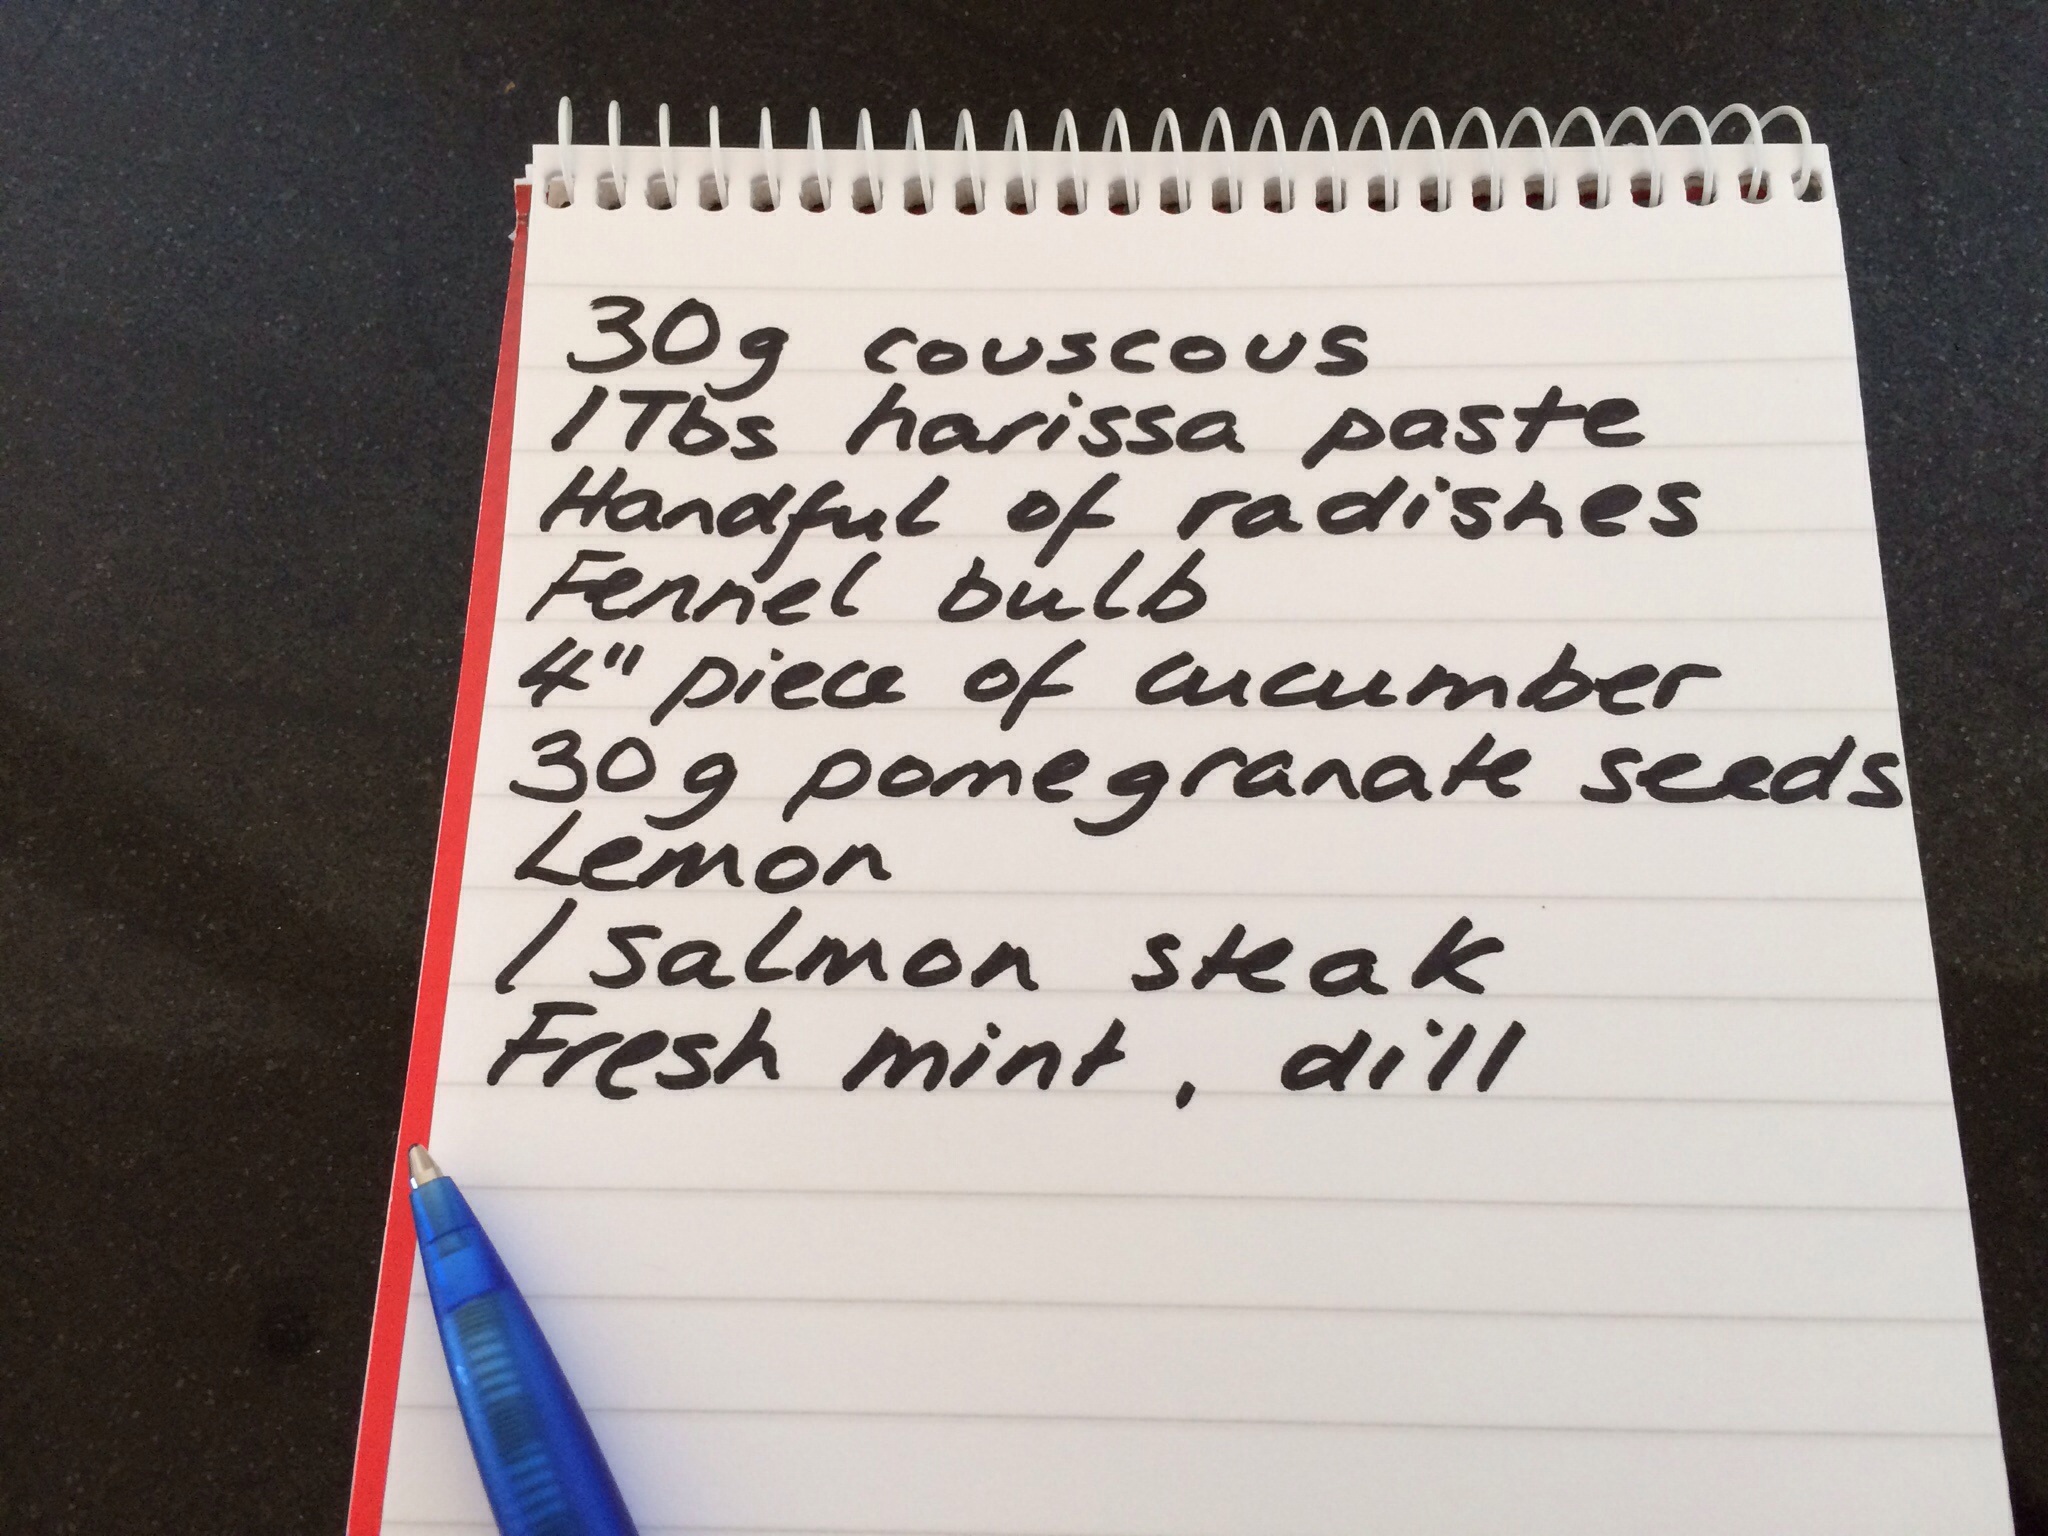 30g couscous
1Tbs harissa paste
Handful of radishes
Fennel bulb
4" piece of cucumber
30g pomegranate seeds
Lemon
1 salmon steak
Fresh mint, dill